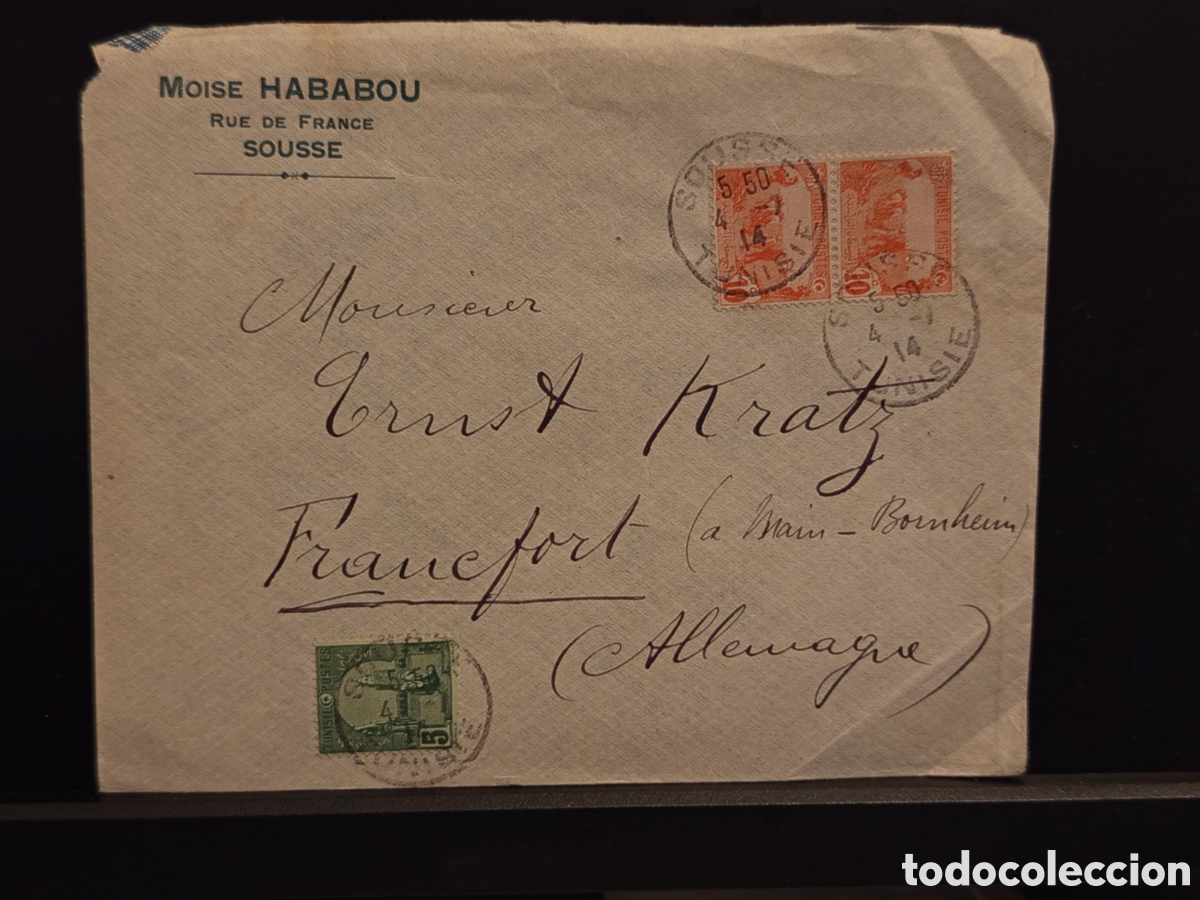 MOISE HABABOU
RUE DE FRANCE
SOUSSE
SOUSSE
5 50
4 -7
14
TUNISIE
10
TUNISIE POSTES
10
SOUSSE
5 50
4 -7
14
TUNISIE
Monsieur
Ernst Kratz
Francfort (a Main - Bornheim)
(Allemagne)
TUNISIE POSTES
5
4
todocoleccion